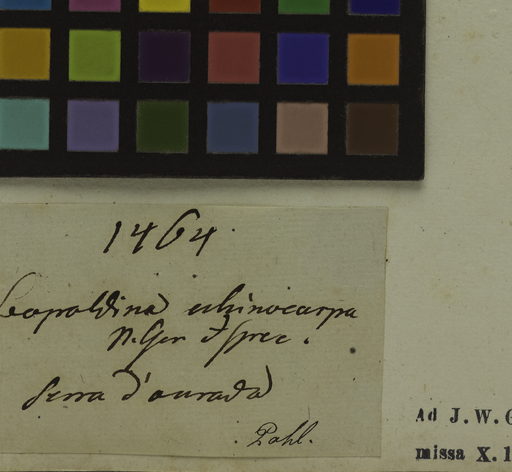 1464.
Leopoldina echinocarpa
N. Gen & spec.
Serra d'ourada
Pohl.
Ad J. W.
missa X. 1